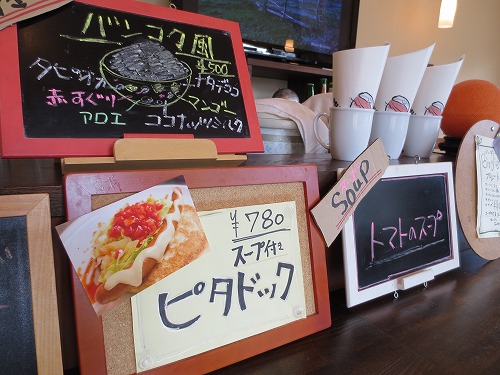 バンコク風
¥500
タピオカ
ナタデココ
赤すぐり
マンゴー
アロエ
ココナッツミルク
¥780
スープ付
ピタドック
SOUP
トマトのスープ